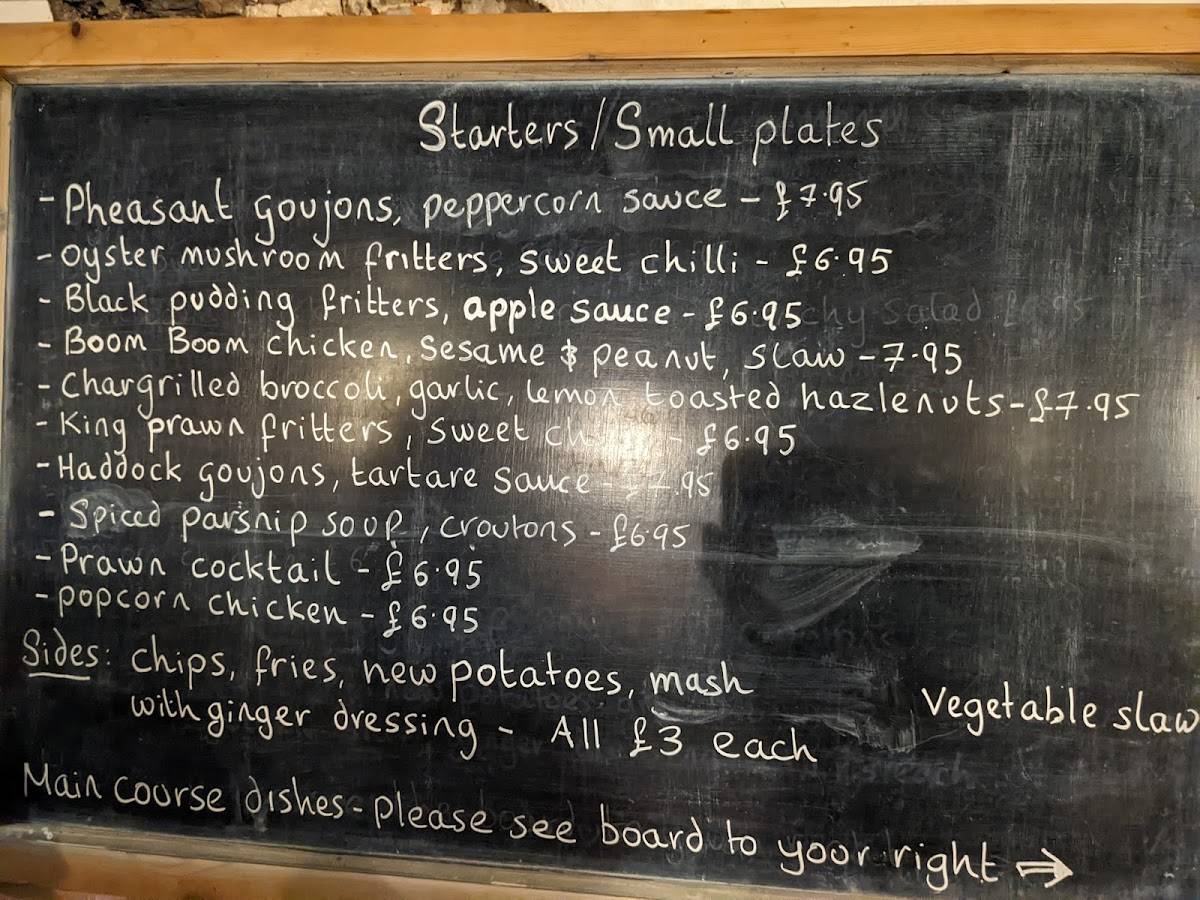 Starters/Small plates
- Pheasant goujons, peppercorn sauce - £7.95
- Oyster mushroom fritters, sweet chilli - £6.95
- Black pudding fritters, apple sauce - £6.95
- Boom Boom chicken, sesame & peanut, slaw - 7.95
- Chargrilled broccoli, garlic, lemon toasted hazlenuts - £7.95
- King prawn fritters, sweet - £6.95
- Haddock goujons, tartare sauce -
- Spiced parsnip soup, croutons - £6.95
- Prawn cocktail - £6.95
- popcorn chicken - £6.95
Sides: chips, fries, new potatoes, mash Vegetable slaw
with ginger dressing - All £3 each
Main course dishes - please see board to your right →